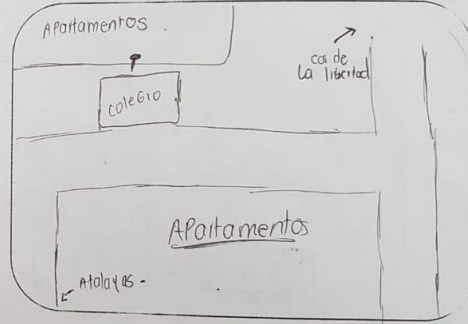 Apartamentos.
cai de
la libertad
colegio
Apartamentos
Atalayas -